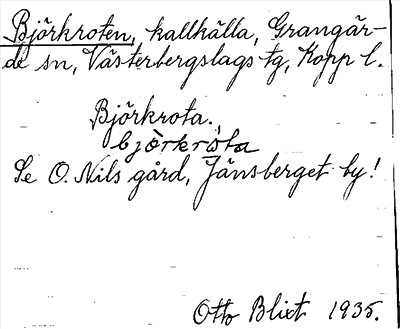 Björkroten, kallkälla, Grangär-
de sn, Västerbergslags tg, Kopp l.
Björkrota.
bjö̀rkrὼta
Se O. Nils gård, Jänsberget by!
Otto Blixt 1935.